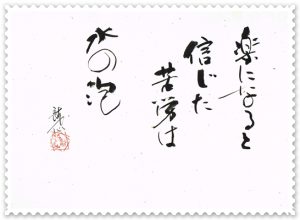 楽になると
信じた
苦労は
水の泡